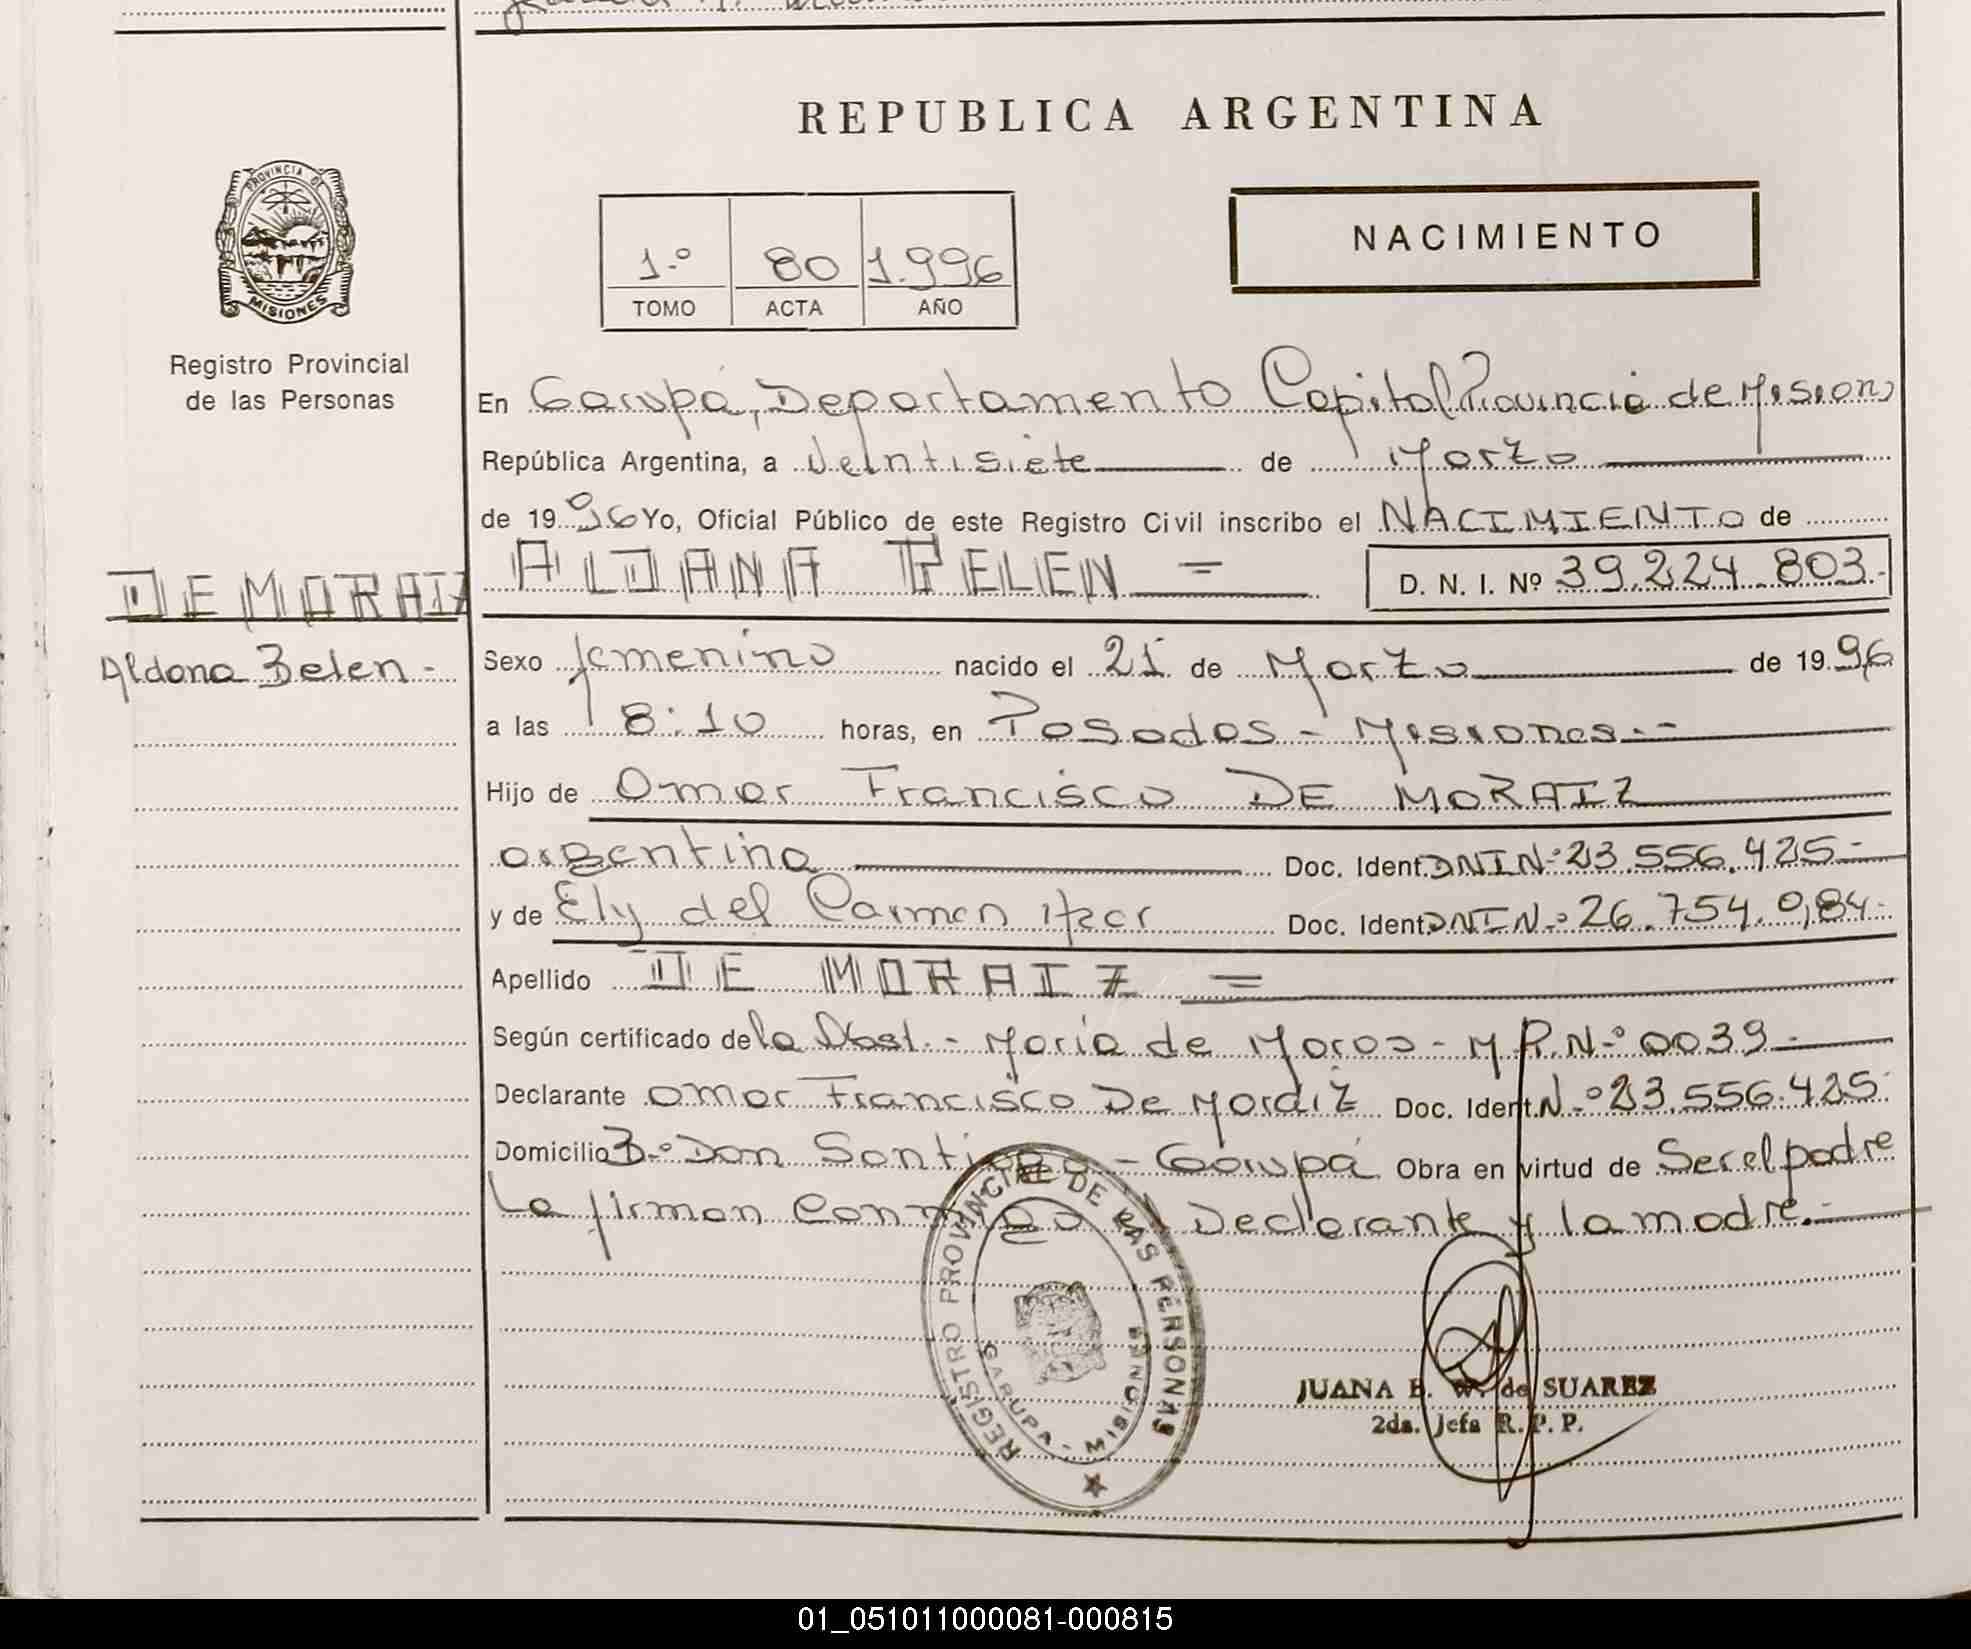 REPUBLICA ARGENTINA
PROVINCIA DE
MISIONES
Registro Provincial
de las Personas
1.º 80 1.996
TOMO ACTA AÑO
NACIMIENTO
En Garupá, Departamento Capital Provincia de Mision
República Argentina, a Veintisiete de Marzo
de 1996 Yo, Oficial Público de este Registro Civil inscribo el NACIMIENTO de
ALDANA BELEN = D. N. I. Nº 39.224.803.-
DE MORAIZ
Aldana Belen -
Sexo femenino nacido el 21 de Marzo de 1996
a las 8:10 horas, en Posadas - Misiones.-
Hijo de Omar Francisco DE MORAIZ
argentino Doc. Ident. DNI N.º 23.556.425-
y de Ely del Carmen Doc. Ident. DNI N.º 26.754.084-
Apellido DE MORAIZ =
Según certificado de la Obst. - Maria de Moros - M.P. N.º 0039 -
Declarante Omar Francisco De Moraiz Doc. Ident. N.º 23.556.425-
Domicilio B.º Don Santiago - Garupá Obra en virtud de Ser el padre
La firman conmigo el Declarante y la madre.-
REGISTRO PROVINCIAL DE LAS PERSONAS
GARUPA - MISIONES
JUANA E. W. de SUAREZ
2da. Jefa R. P. P.
01_051011000081-000815